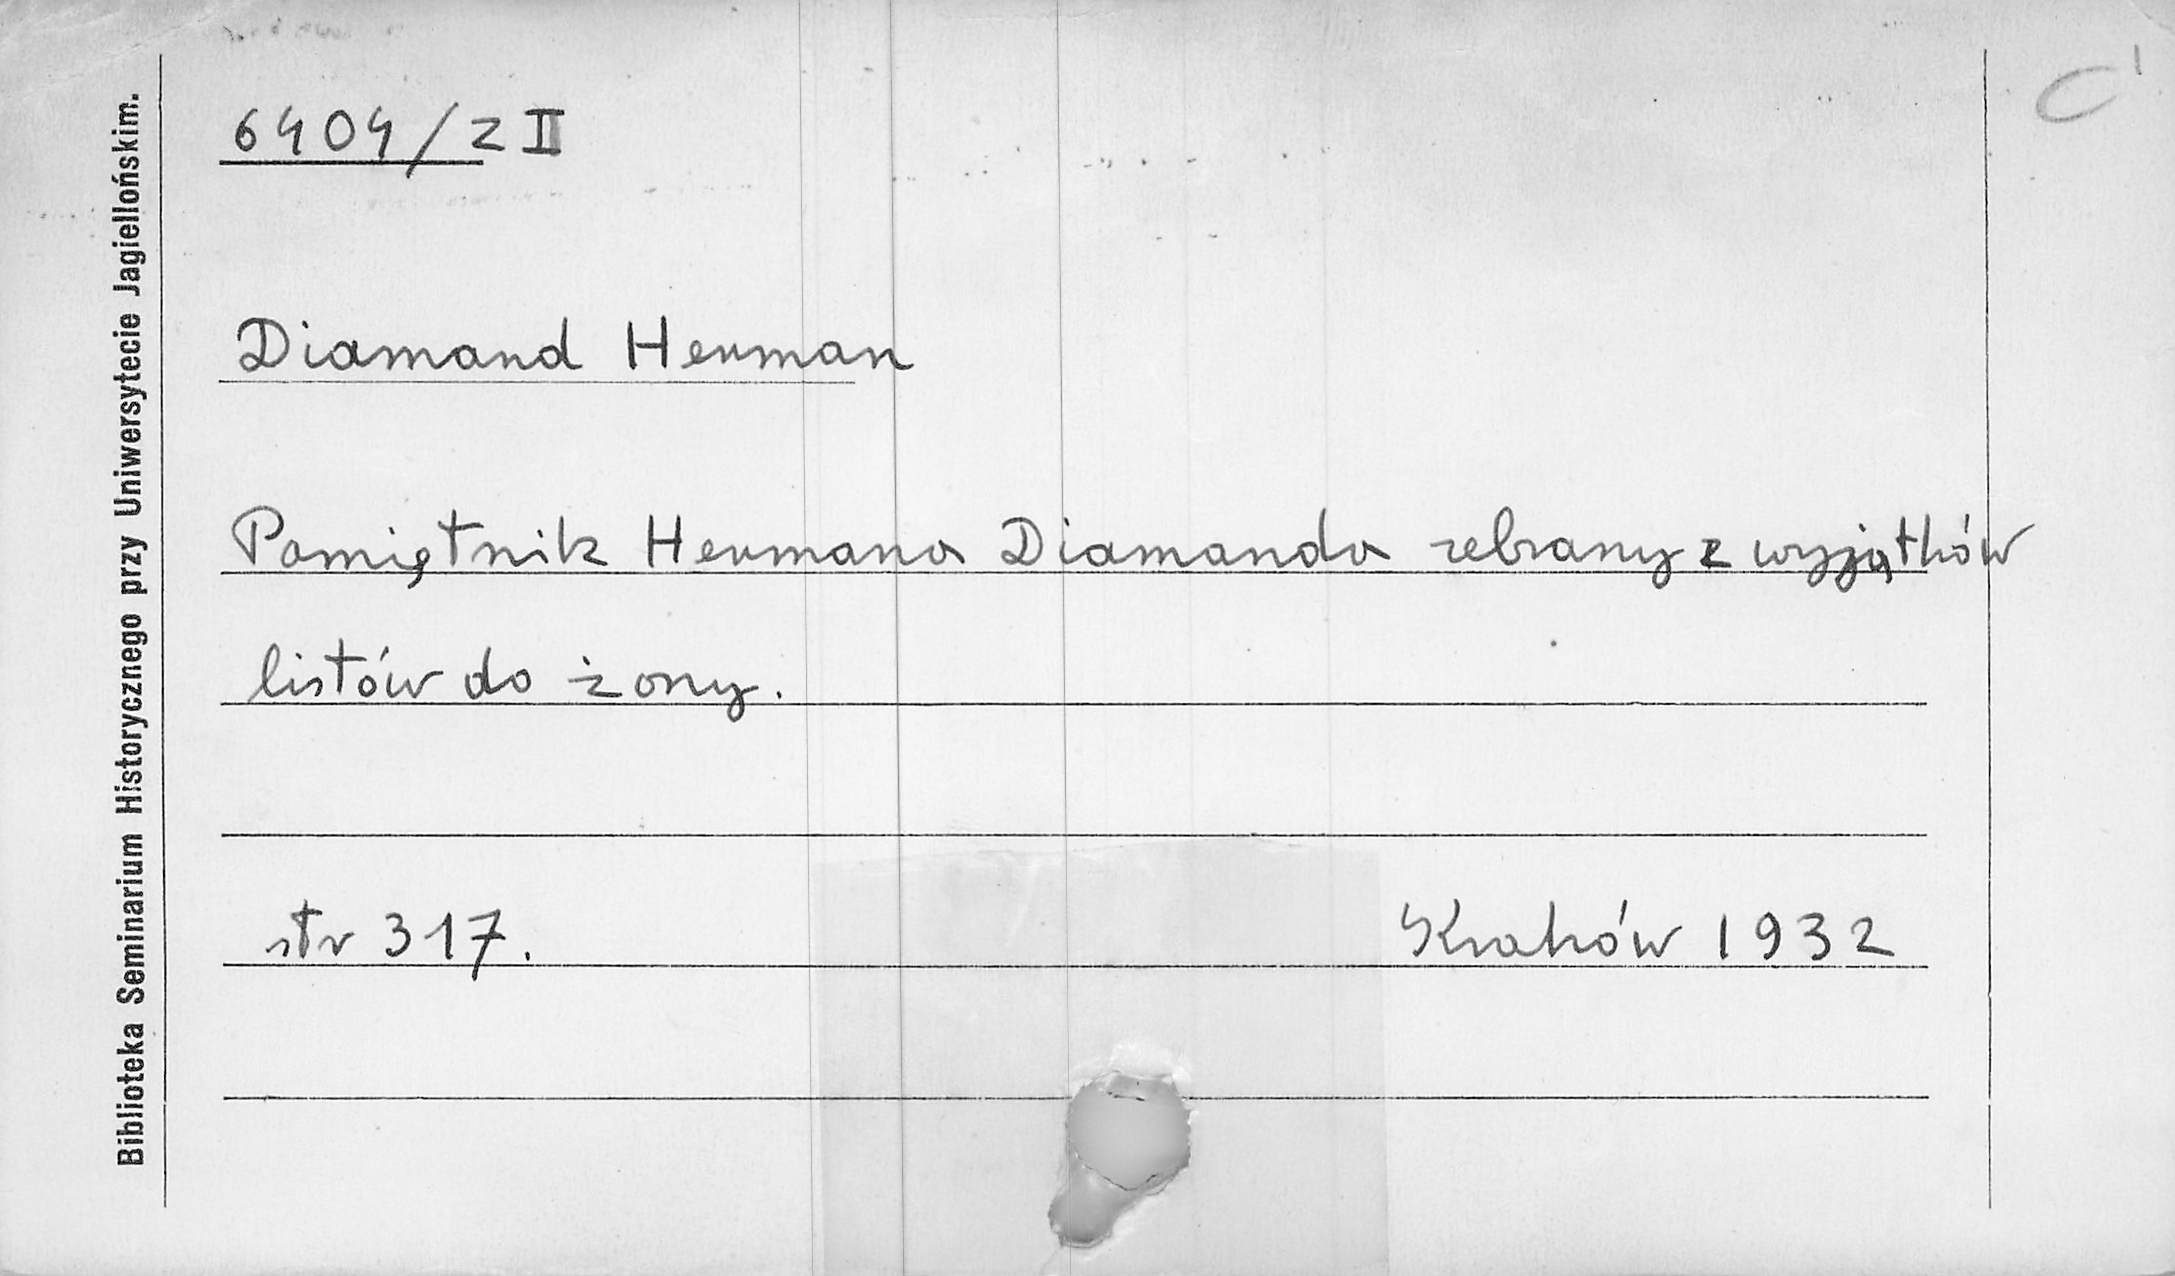 6404/z II
C
Diamand Herman
Pamiętnik Hermana Diamanda zebrany z wyjątków
listów do żony.
str 317. Kraków 1932
Biblioteka Seminarium Historycznego przy Uniwersytecie Jagiellońskim.